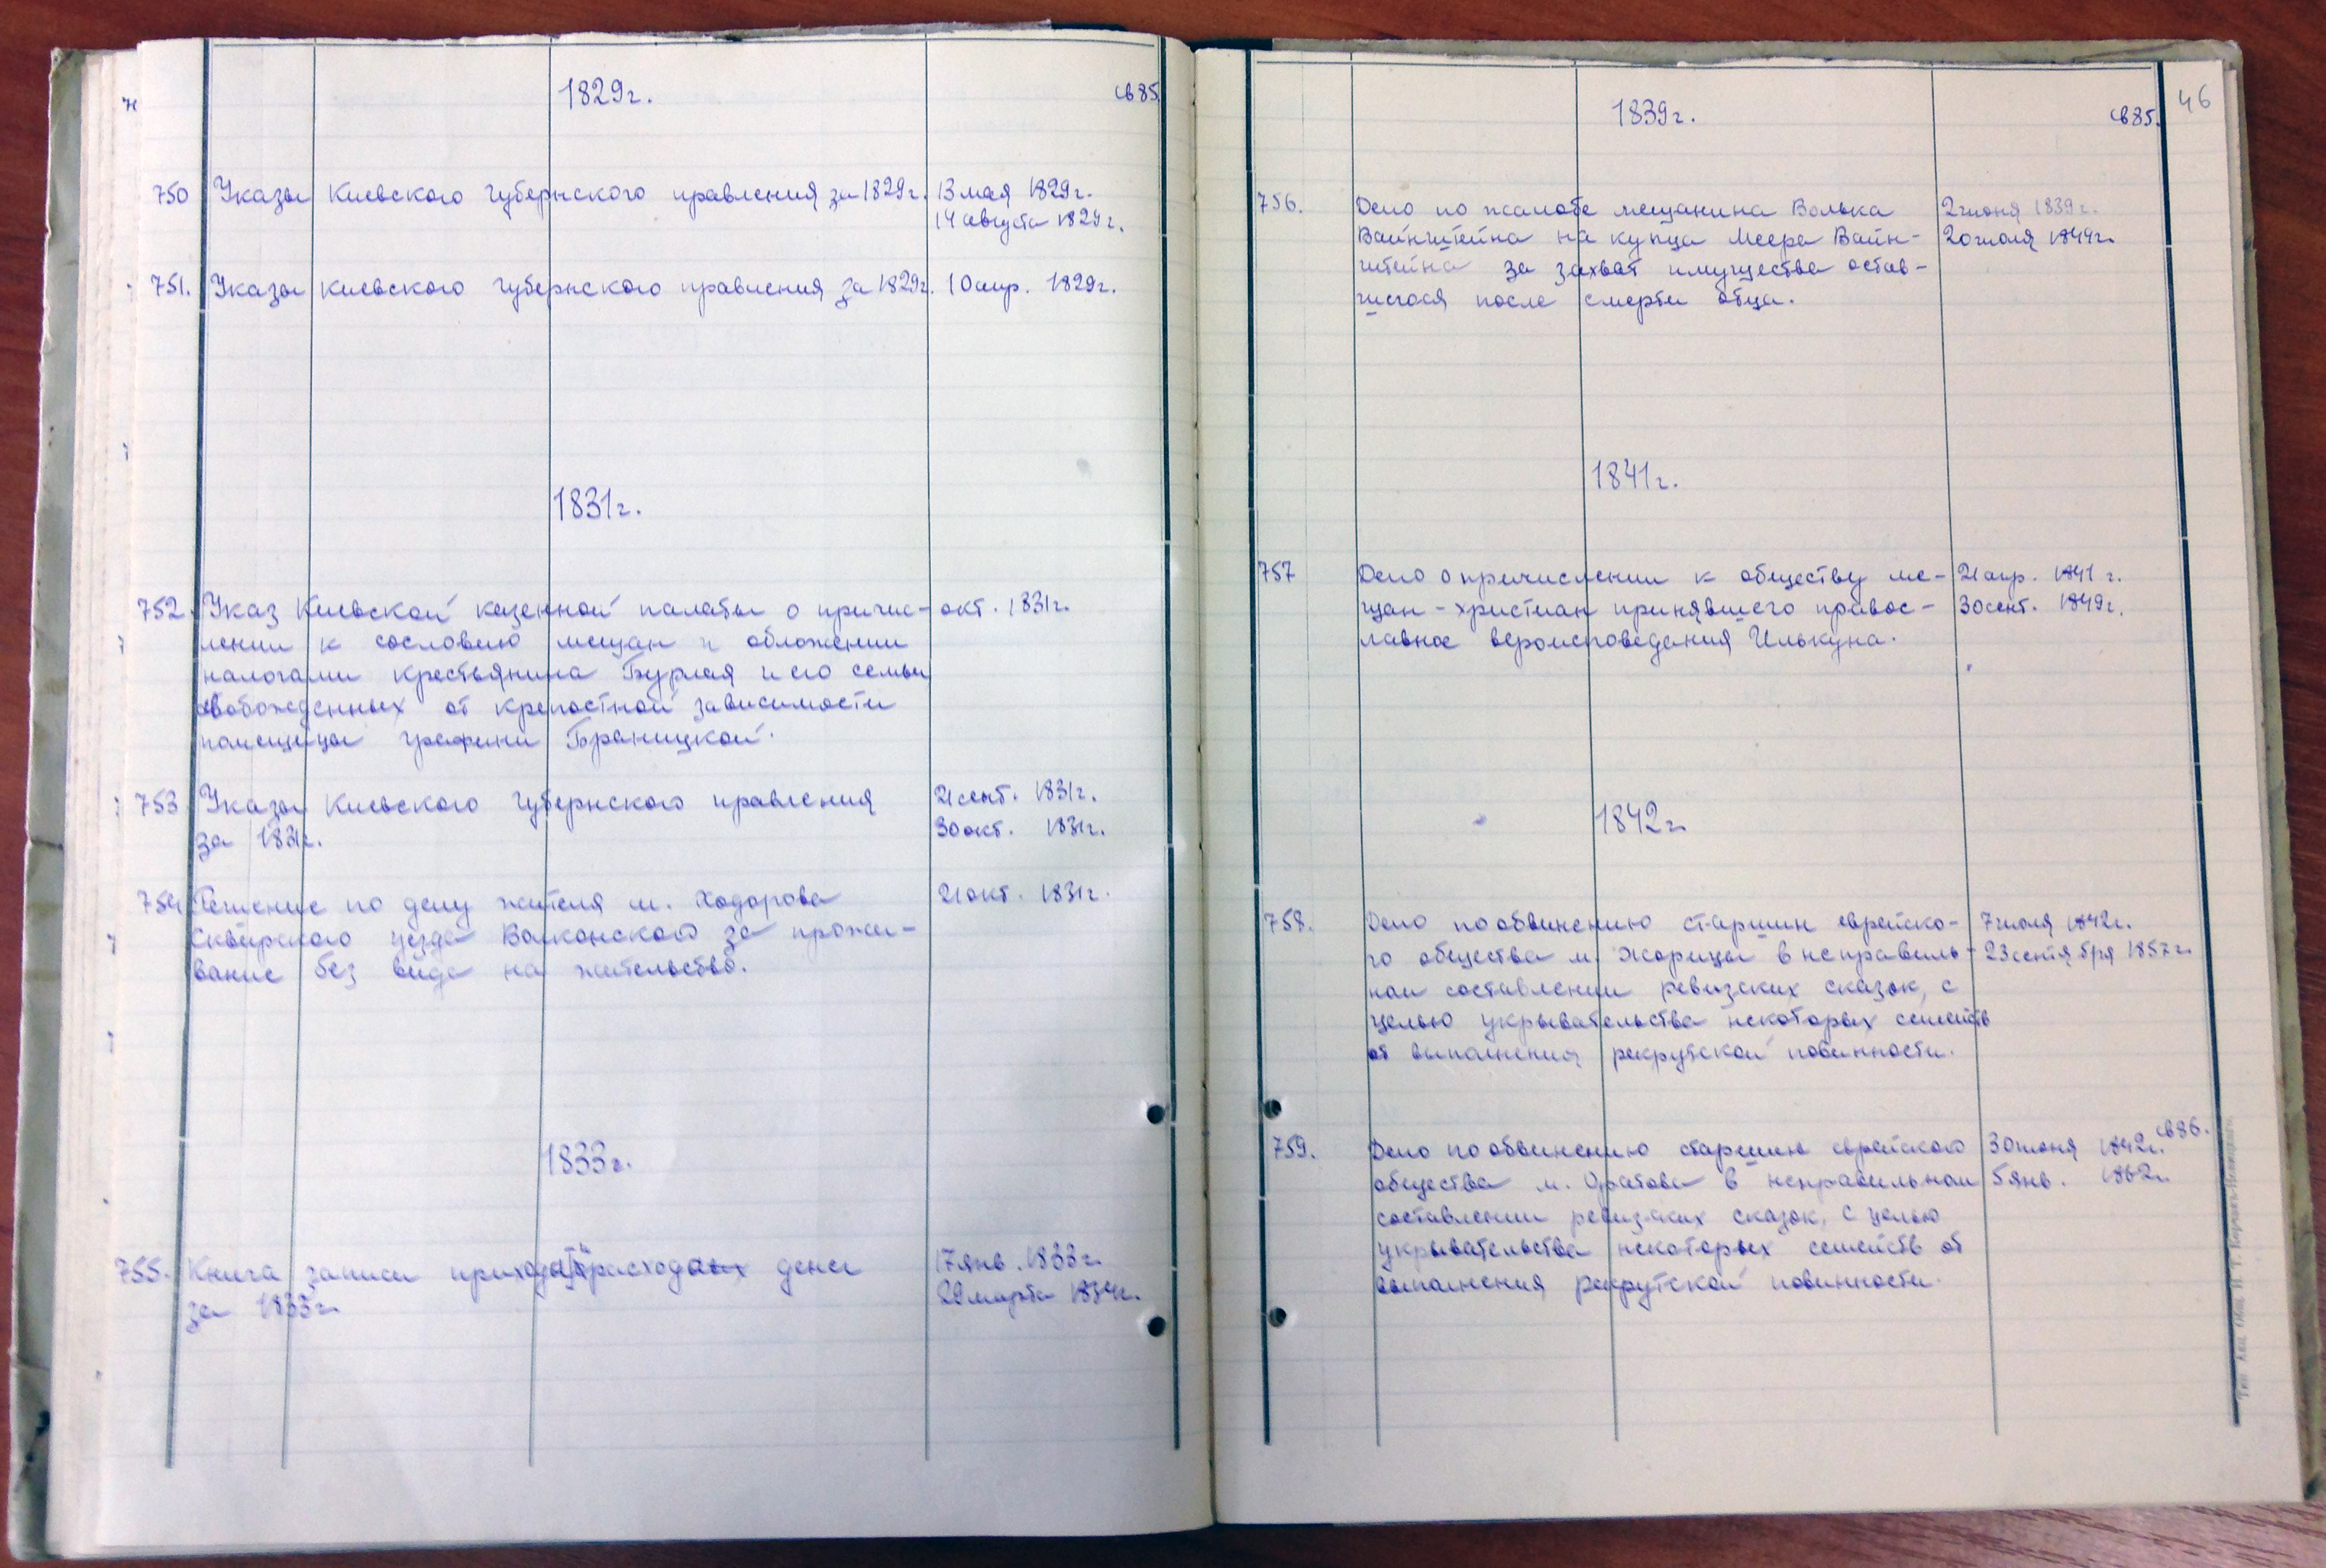 1829г.
св85
750 Указы Киевского губернского правления за 1829г. 13 мая 1829г.
14 августа 1829г.
751. Указы Киевского губернского правления за 1829г. 10 апр. 1829г.
1831г.
752. Указ Киевской казенной палаты о причис- окт. 1831г.
лении к сословию мещан и обложении
налогами крестьянина Бурлая и его семьи
свобожденных от крепостной зависимости
помещицы графини Браницкой.
753 Указы Киевского губернского правления 21 сент. 1831г.
за 1831г. 30 окт. 1831г.
754 Решение по делу жителя м. Ходорова 21 окт. 1831г.
Сквирского уезда Волконского за прожи-
вание без вида на жительство.
1833г.
755. Книга записи прихода и расхода денег 17 янв. 1833г.
за 1833г. 29 марта 1834г.
46
1839г.
св85.
756. Дело по жалобе мещанина Волька 2 июня 1839г.
Вайнштейна на купца Меера Вайн- 20 июля 1844г.
штейна за захват имущества остав-
шегося после смерти отца.
1841г.
757 Дело о причислении к обществу ме- 21 апр. 1841 г.
щан-христиан принявшего правос- 30 сент. 1849г.
лавное вероисповедания Илькуна.
1842г.
758. Дело по обвинению старшин еврейско- 7 июля 1842г.
го общества м. Жорницы в неправиль- 23 сентября 1857г.
ном составлении ревизских сказок, с
целью укрывательства некоторых семейств
от выполнения рекрутской повинности.
св86.
759. Дело по обвинению старшин еврейского 30 июня 1842г.
общества м. Оратова в неправильном 5 янв. 1862г.
составлении ревизских сказок, с целью
укрывательства некоторых семейств от
выполнения рекрутской повинности.